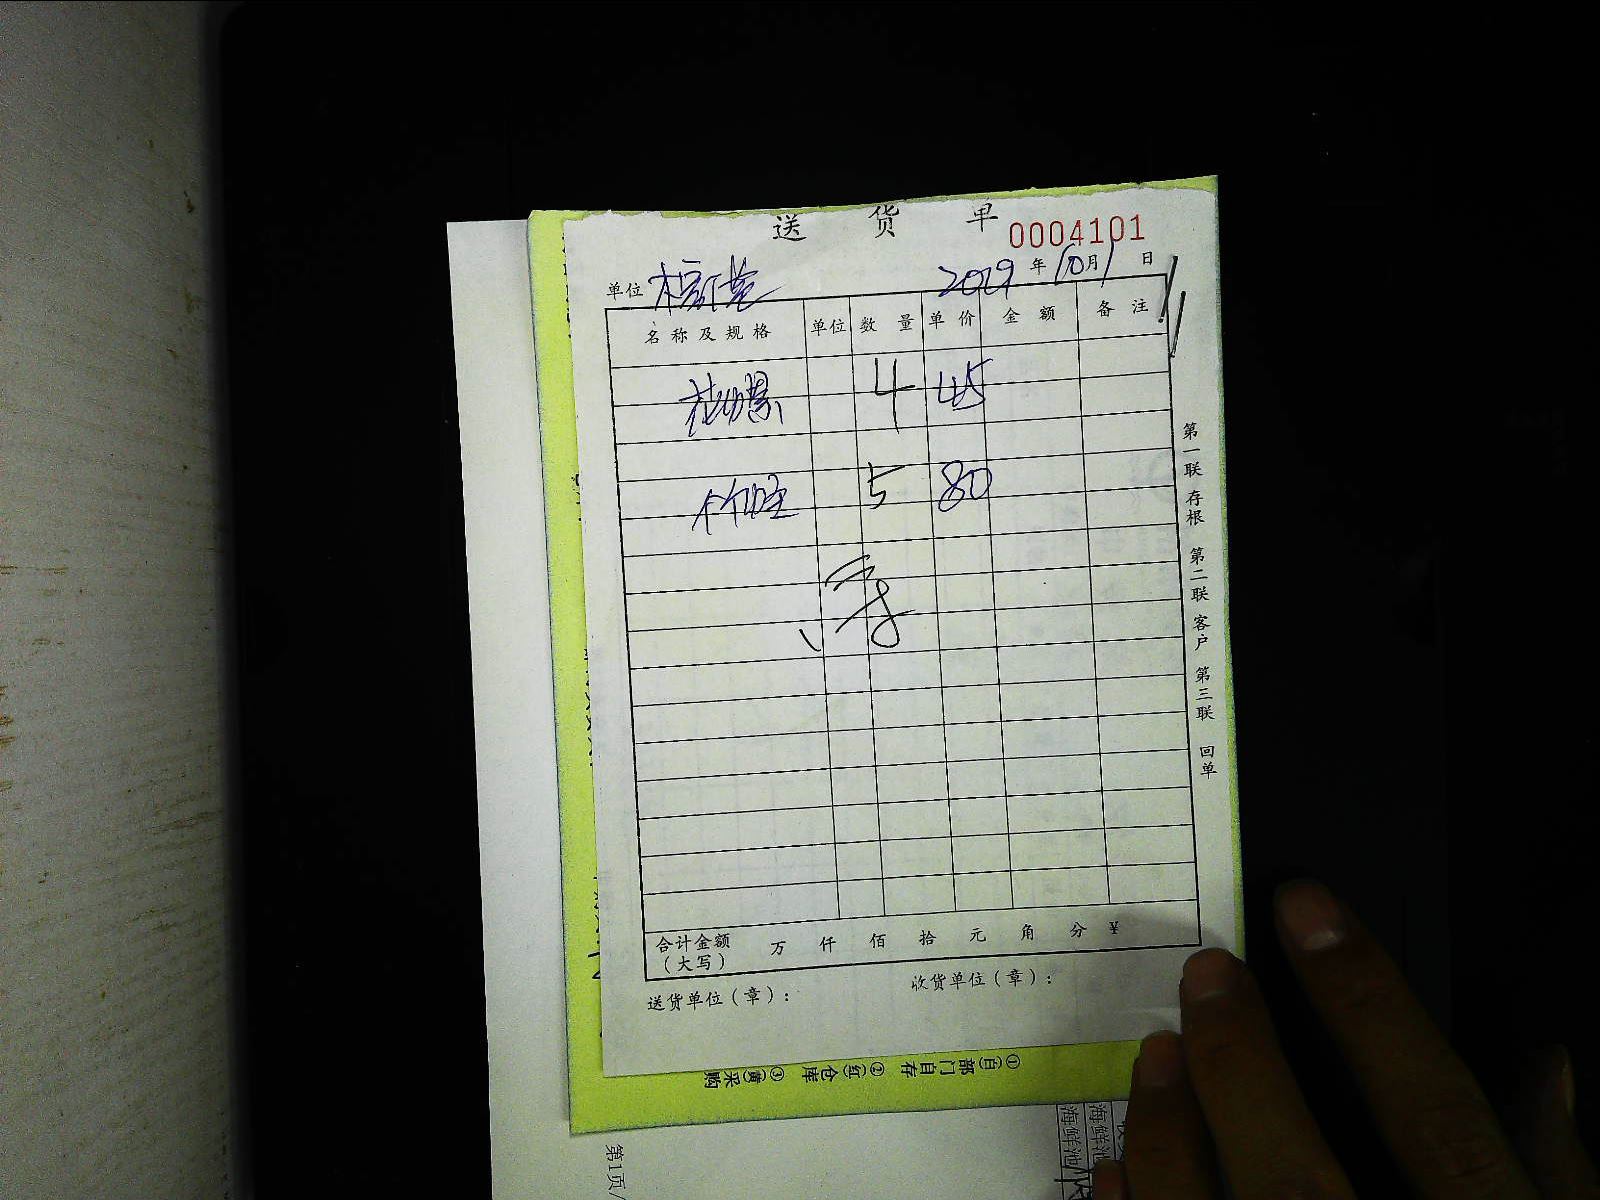 送货单
0004101
单位 2019年10月1日
名称及规格 单位 数量 单价 金额 备注
4 45
5 80
第一联 存根 第二联 客户 第三联 回单
合计金额(大写) 万 仟 佰 拾 元 角 分 ¥
送货单位(章): 收货单位(章):
①(白)部门自存 ②(红)仓库 ③(黄)采购
第1页/
海鲜池
海鲜池